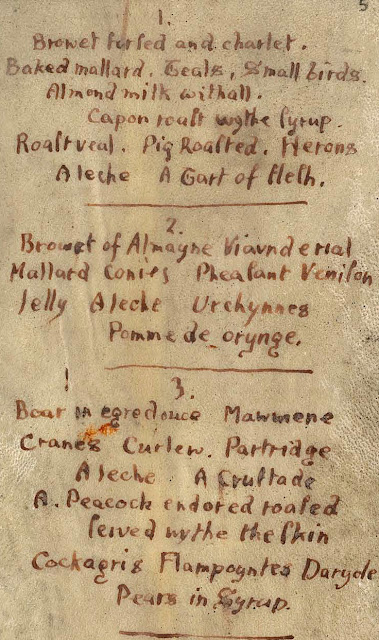 5
1.
Browet farsed and charlet.
Baked mallard. Teals, Small birds.
Almond milk withall.
Capon roast wythe Syrup.
Roast veal. Pig Roasted. Herons
A leche A Tart of flesh.
2.
Browet of Almayne Viavnde rial
Mallard Conies Pheasant Venison
Jelly A leche Urchynnes
Pomme de orynge.
3.
Boar in egredouce Mawmene
Cranes Curlew. Partridge
A leche A Crustade
A. Peacock endored roasted
served wythe the skin
Cockagris Flampoyntes Daryole
Pears in Syrup.